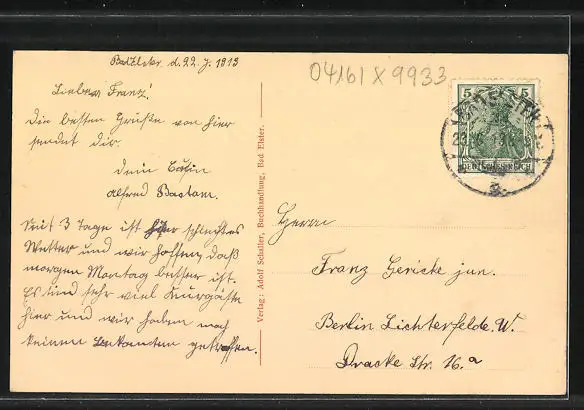 Bad Elster d. 22. J. 1913
04161 X 9933
Lieber Franz!
Die besten Grüße von hier
sendet dir
dein Cousin
Alfred Bastam.
Seit 3 Tage ist hier schlechtes
Wetter und wir hoffen, daß
morgen Montag besser ist.
Es sind sehr viel Kurgäste
hier und wir haben noch
keinen Bekannten getroffen.
Verlag: Adolf Schaller, Buchhandlung, Bad Elster.
5 5
DEUTSCHES REICH
Herrn
Franz Gericke jun.
Berlin Lichterfelde. W.
Dracke Str. 16.a